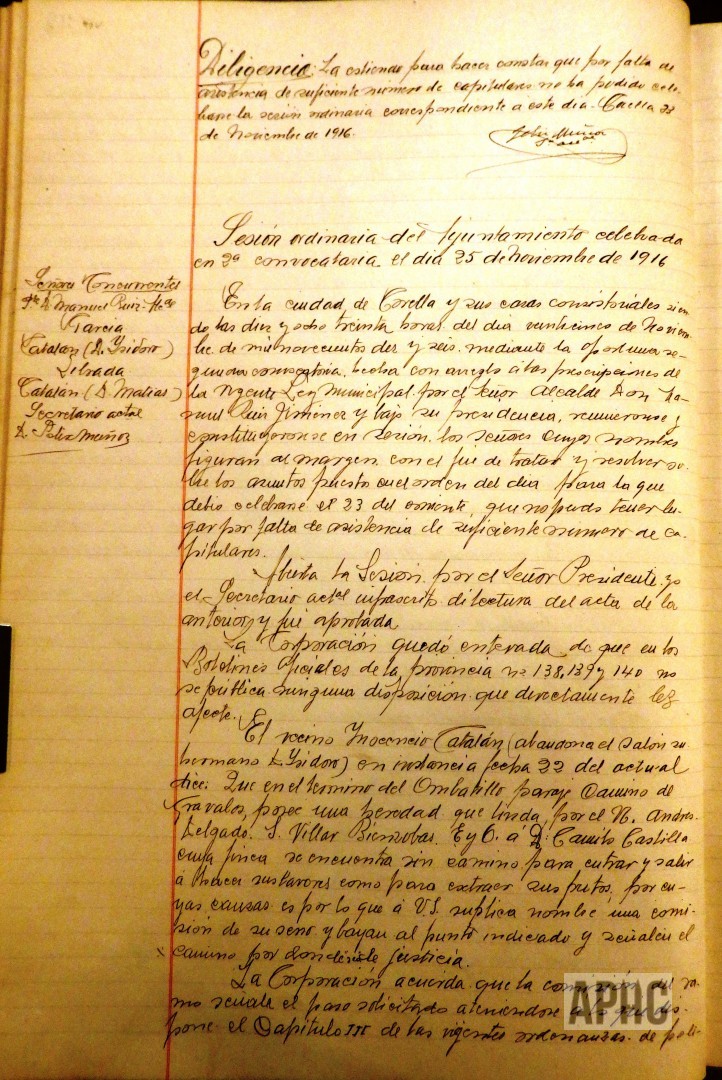 Diligencia: La estiendo para hacer constar que por falta de
asistencia de suficiente número de capitulares no ha podido cele-
brarse la sesión ordinaria correspondiente a este dia. Corella 23
de Noviembre de 1916.
Felix Muñoz
Sesión ordinaria del Ayuntamiento celebrada
en 2ª convocatoria el dia 25 de Noviembre de 1916
Señores Concurrentes
Pte. D. Manuel Ruiz
Garcia
Catalán (D. Ysidoro)
Librada
Catalán (D. Matias)
Secretario actal
D. Felix Muñoz
En la ciudad de Corella y sus casas consistoriales sien-
do las diez y ocho treinta horas del dia veinticinco de Noviem-
bre de mil novecientos diez y seis, mediante la oportuna se-
gunda convocatoria, hecha con arreglo a las prescripciones de
la vigente Ley Municipal por el señor Alcalde Don Ma-
nuel Ruiz Jimenez y bajo su presidencia, reunieronse y
constituyeronse en sesión los señores cuyos nombres
figuran al margen con el fin de tratar y resolver so-
bre los asuntos puesto en el orden del dia para la que
debió celebrarse el 23 del corriente, que no pudo tener lu-
gar por falta de asistencia de suficiente numero de ca-
pitulares.
Abierta la Sesión por el Señor Presidente, yo
el Secretario actal infrascrito di lectura del acta de la
anterior y fué aprobada.
La Corporación quedó enterada de que en los
Boletines oficiales de la provincia nº 138, 139 y 140 no
se publica ninguna disposición que directamente les
afecte.
El vecino Ynocencio Catalán (abandona el salón su
hermano D. Ysidoro) en instancia fecha 22 del actual
dice: Que en el termino del Ombatillo paraje Camino de
Gravalos, posee una heredad que linda, por el N. Andres
Delgado. S. Villar Bienzobas. E y O. á D. Camilo Castilla
cuya finca se encuentra sin camino para entrar y salir
á hacer sus labores como para extraer sus frutos, por cu-
yas causas es por lo que á V.S. suplica nombre una comi-
sión de su seno y bayan al punto indicado y señalen el
x camino por donde sea de justicia.
La Corporación acuerda que la comisión del ra-
mo señale el paso solicitado ateniendose a lo que dis-
pone el Capitulo III de las vigentes ordenanzas de poli-
APHC